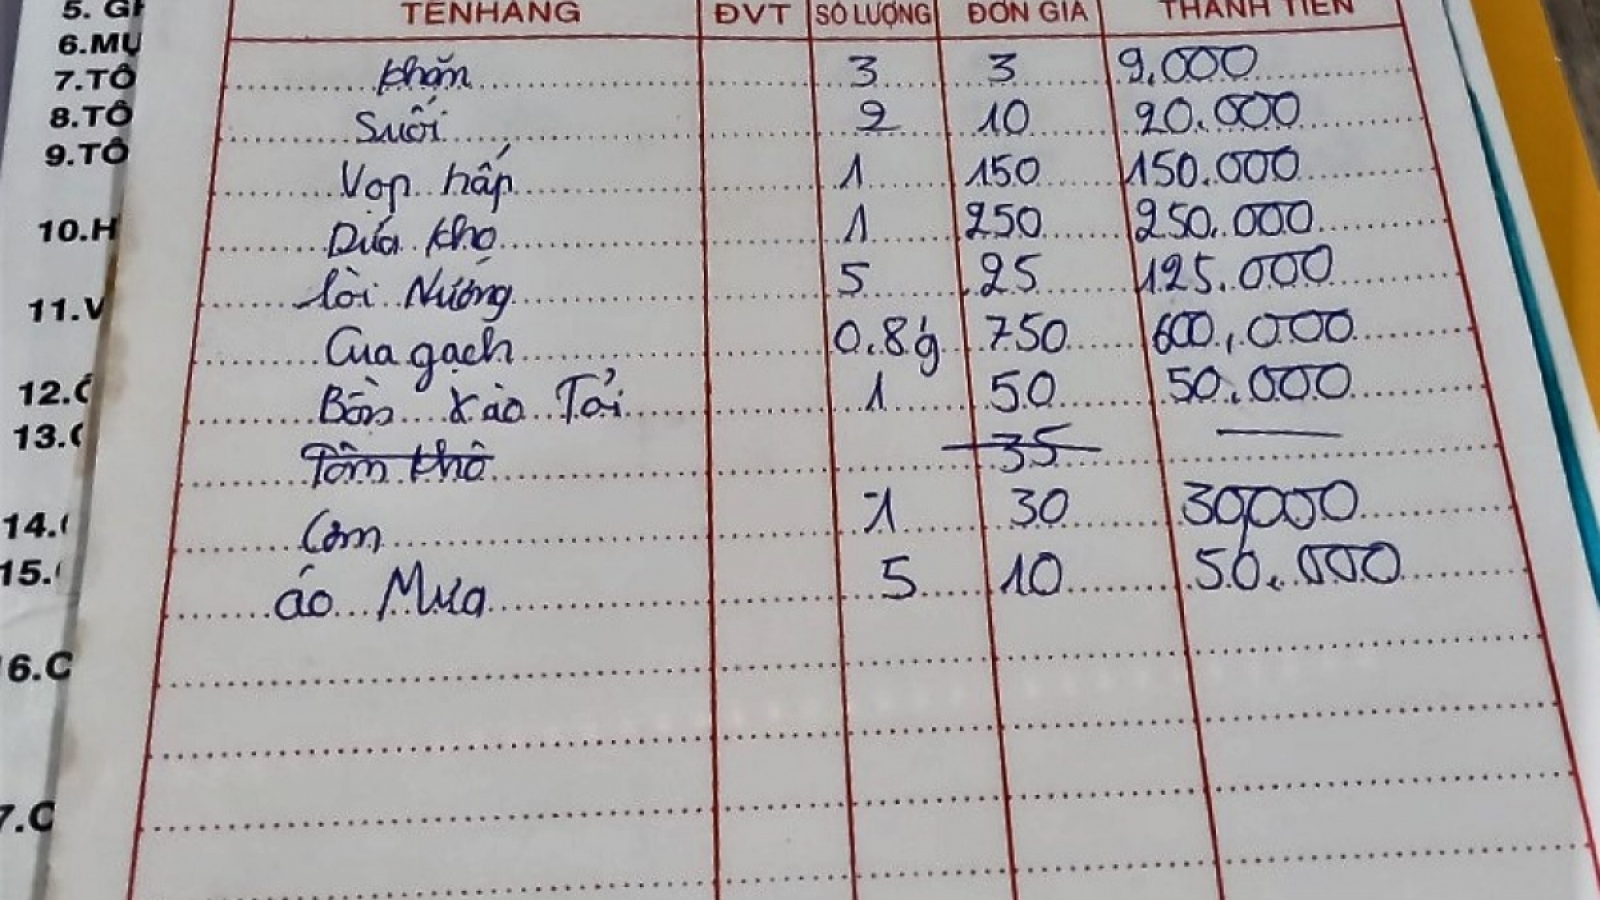 5. GH
6.MỤ
7.TÔ
8.TÔ
9.TÔ
10.H
11.V
12.
13.
14.
15.
6.C
7.C
TÊNHÀNG ĐVT SỐ LƯỢNG ĐƠN GIÁ THÀNH TIỀN
khăn 3 3 9.000
Suối 2 10 20.000
Vọp hấp 1 150 150.000
Dứa kho 1 250 250.000
lòi Nướng 5 25 125.000
Cua gạch 0.8 750 600.000
Bồn xào Tỏi 1 50 50.000
Tôm khô 35
Cơm 1 30 30,000
áo Mưa 5 10 50.000